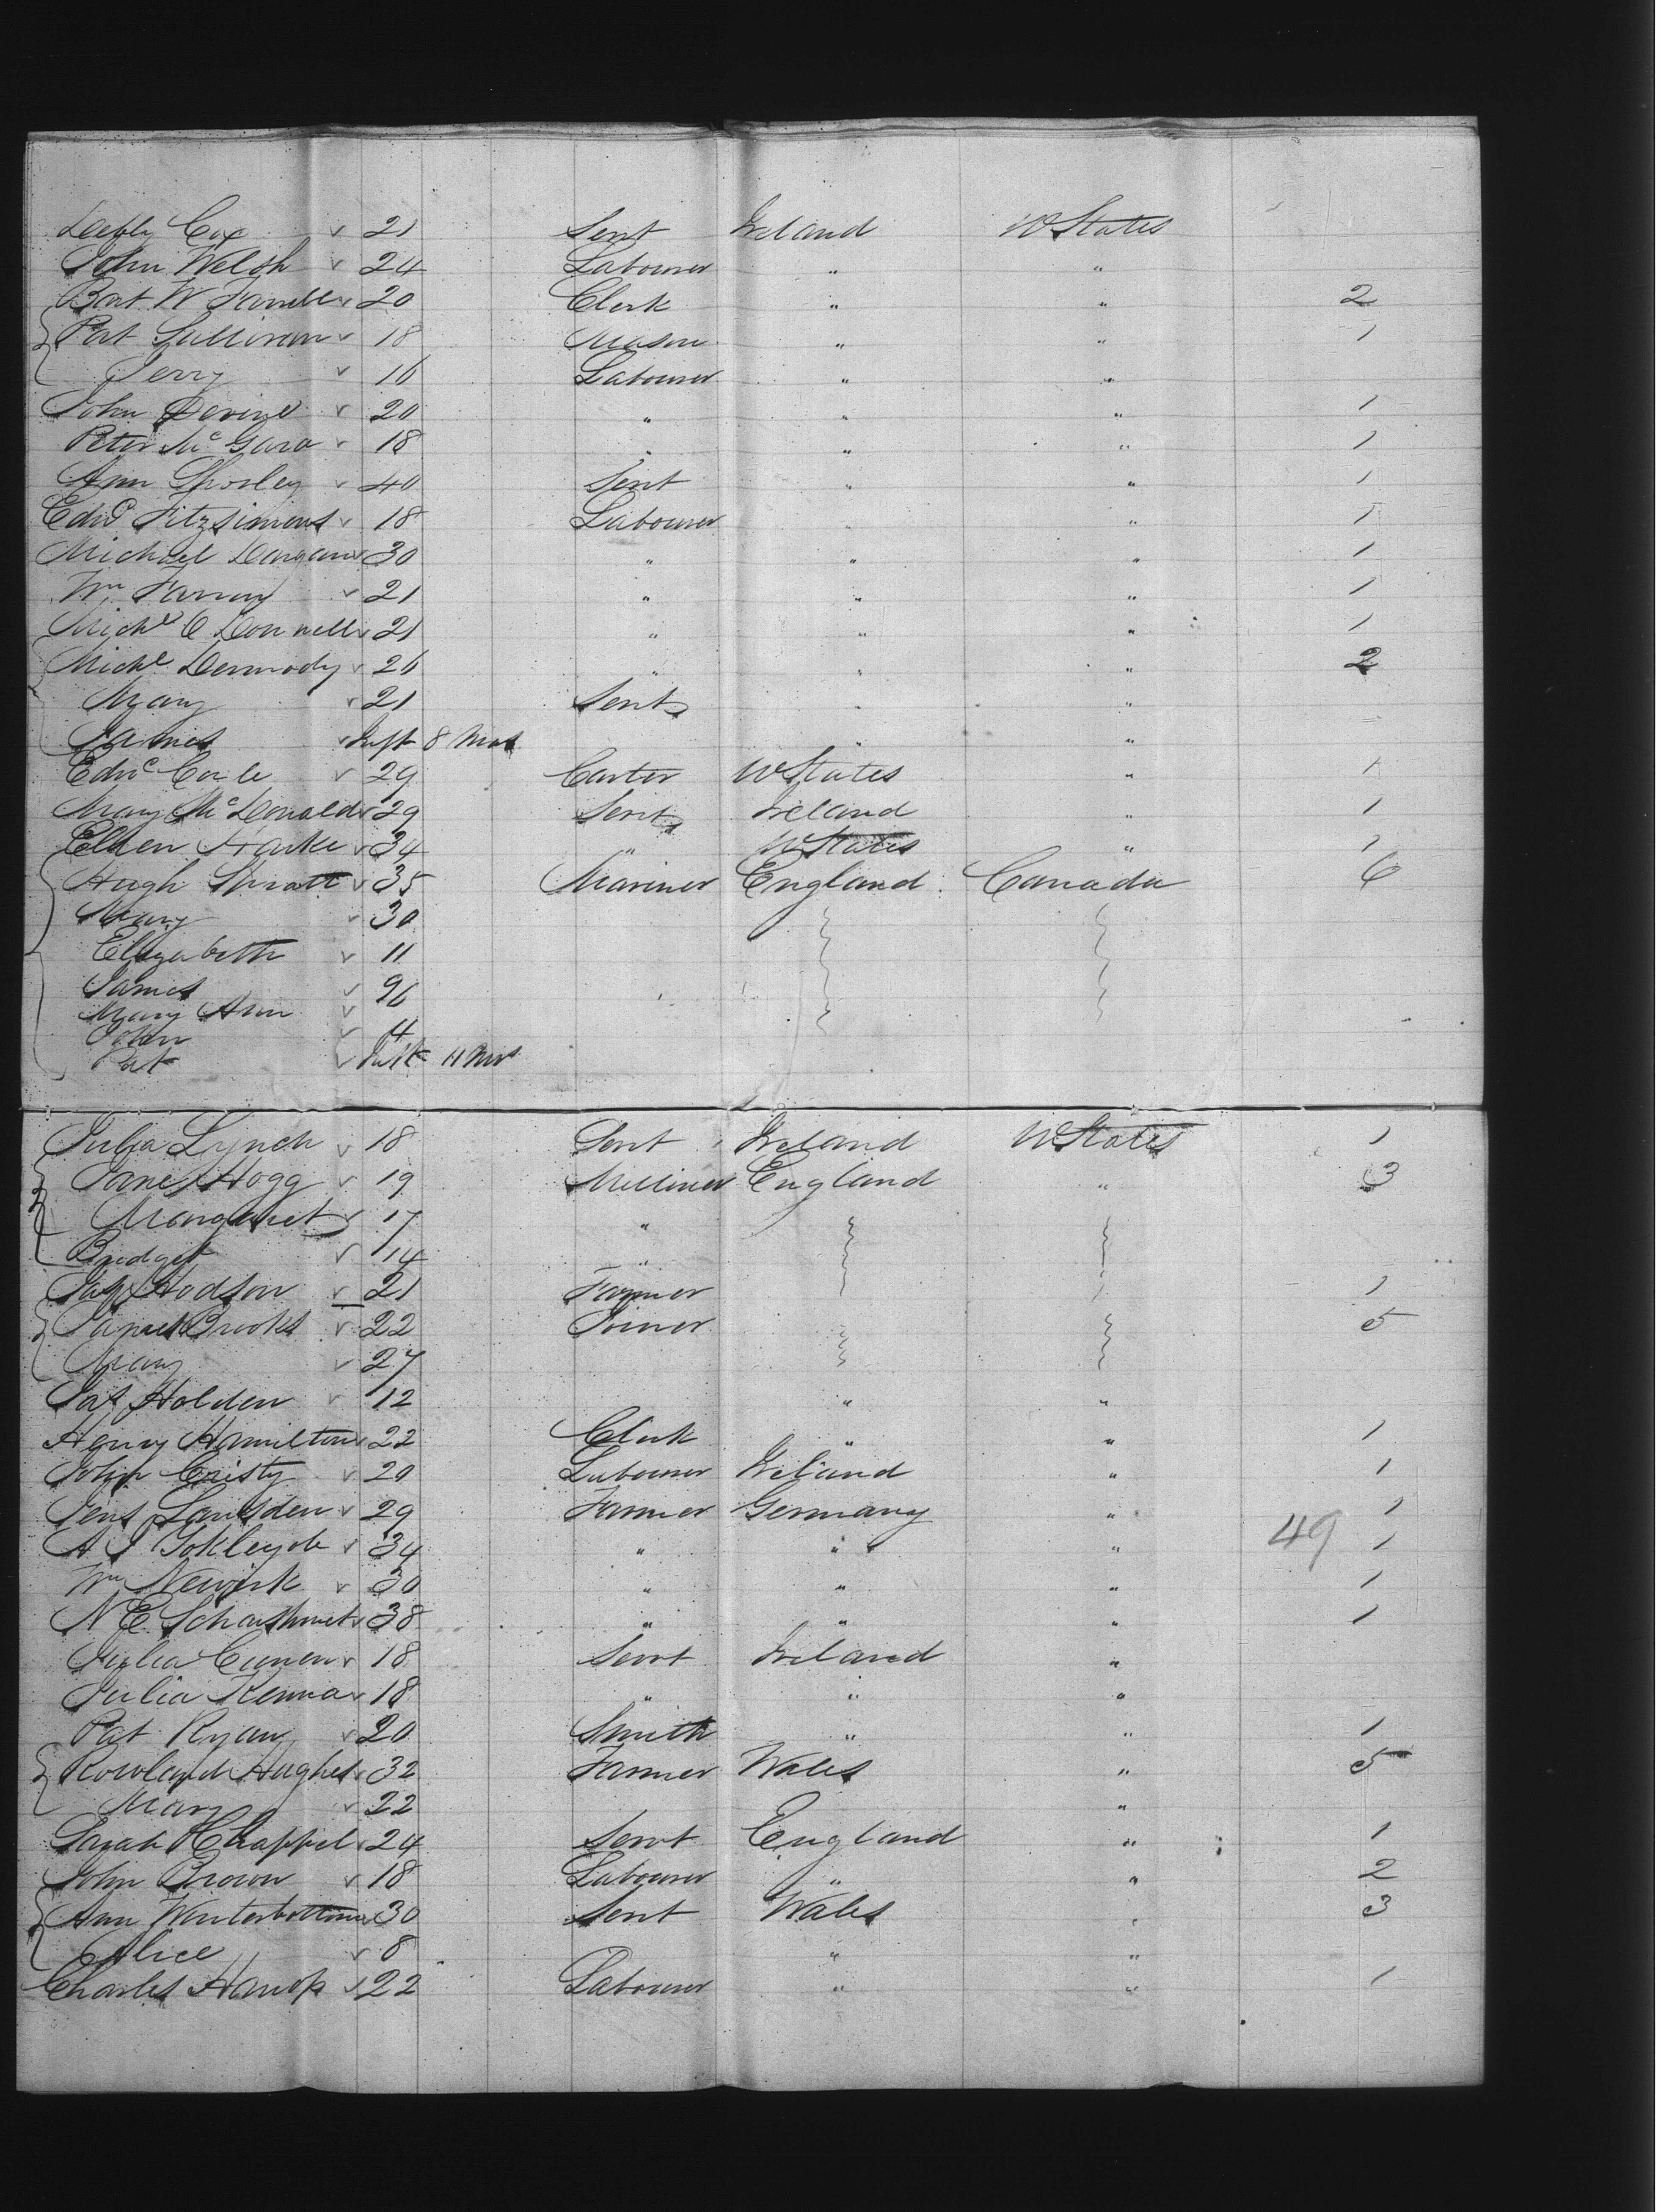 Cox 21 Servt Ireland U States
John Welsh 24 Labourer " "
Bart W Farrell 20 Clerk " " 2
Pat Sullivan 18 Mason " " 1
Jerry 16 Labourer " "
John Devine 20 " " " 1
Peter McGara 18 " " " 1
Ann 40 Servt " " 1
Edwd Fitzsimons 18 Labourer " " 1
Michael Dargan 30 " " " 1
Wm 21 " " " 1
Michl O Donnell 21 " " " 1
Michl Dermody 26 " " " 2
Mary 21 Servt " "
James Inft 8 Mos " "
Edwd 29 Carter U States " 1
Mary McDonald 29 Servt Ireland " 1
Ellen 34 " U States " 1
Hugh 35 Mariner England Canada 6
Mary 30
Elizabeth 11
James 9
Mary Ann 6
John 4
Pat Inft 11 Mos
Julia Lynch 18 Servt Ireland U States 1
Jane Hogg 19 Milliner England " 3
Margaret 17 "
Bridget 14 "
Jas Hodson 21 Farmer 1
James Brooks 22 Joiner 5
Mary 27
Jas Holden 12 " "
Henry Hamilton 22 Clerk " " 1
John Cristy 20 Labourer Ireland " 1
Jens 29 Farmer Germany " 1
A J 34 " " " 49 1
Wm Newirk 30 " " " 1
N E 38 " " " 1
Julia 18 Servt Ireland "
Julia Kenna 18 " " "
Pat Ryan 20 Smith " " 1
Rowland Hughes 32 Farmer Wales " 5
Mary 22 "
Sarah Chappel 24 Servt England " 1
John Brown 18 Labourer " " 2
Ann Winterbottom 30 Servt Wales " 3
Alice 8 " "
Charles 22 Labourer " " 1